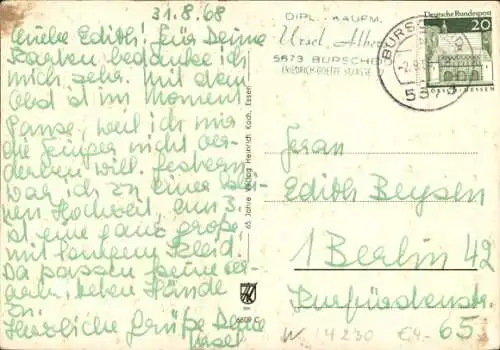 31.8.68
Liebe Edith! Für Deine
Karten bedanke ich
mich sehr. Mit dem
Obst ist im Moment
Pause, weil ich mir
die Finger nicht ver-
derben will. Gestern
war ich zu einer
nen Hochzeit, am 3.
ist eine ganz große
mit langem Kleid.
Da passen keine
Hände
zu.
Herzliche Grüße Deine
Ursel
65 Jahre Verlag Heinrich Koch, Essen
6609 C
DIPL.-KAUFM.
Ursel
5673 BURSCHEID
FRIEDRICH-GOETZE-STRASSE
Deutsche Bundespost
20
BURSCHEID
-2.9.68
5673
LORSCH/HESSEN
Fern
Edith Beysen
1 Berlin 42
Kurfürstenstr.
65
W 14230 €4.-